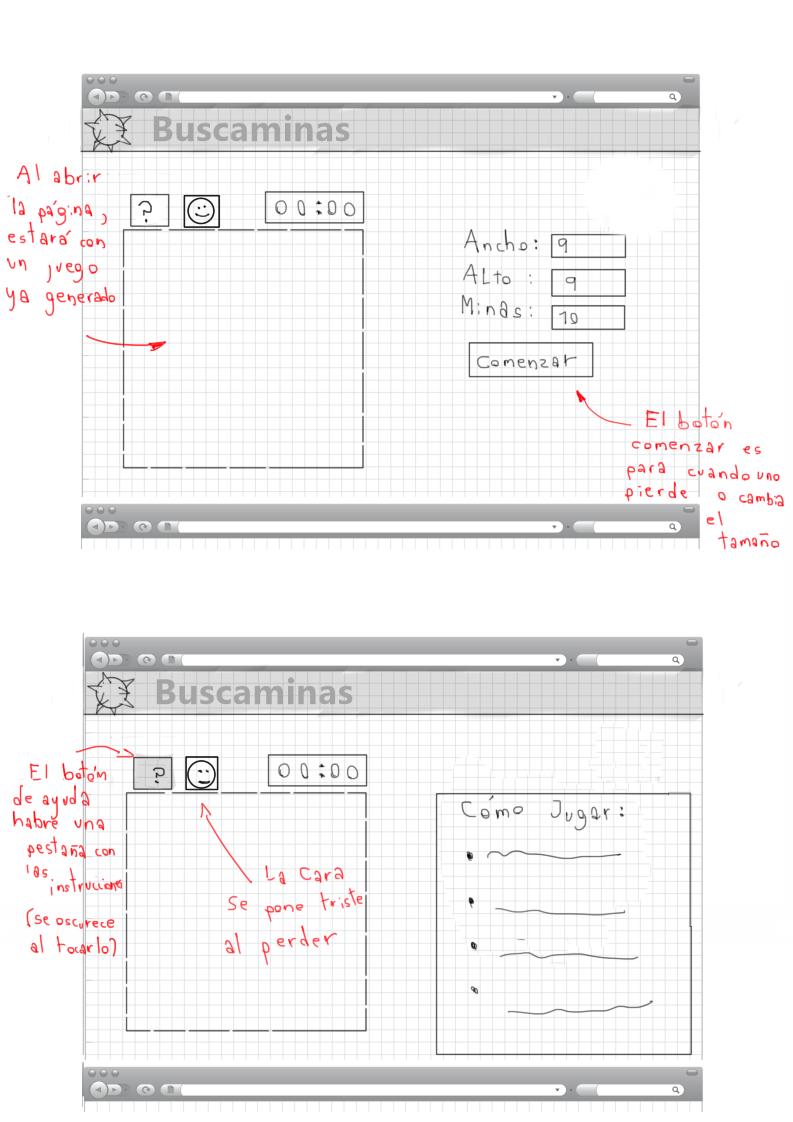 Buscaminas
Al abrir
la página,
estará con
un juego
ya generado
?
00:00
Ancho: 9
ALto : 9
Minas: 10
Comenzar
El botón
comenzar es
para cuando uno
pierde o cambia
el
tamaño
Buscaminas
?
00:00
El botón
de ayuda
habre una
pestaña con
las instruciones
(se oscurece
al tocarlo)
La Cara
se pone triste
al perder
Cómo Jugar: